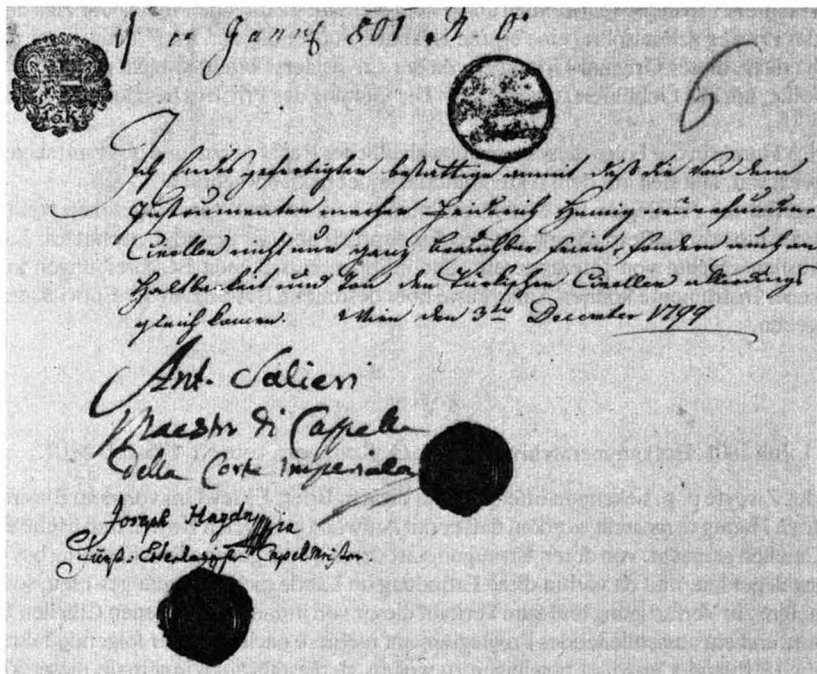 801
6
Ich Endes gefertigter bestättige anmit daß die von dem
Instrumenten macher Heinrich Hennig neu erfundene
Cinellen nicht nur ganz brauchbar seien, sondern auch an
Haltbarkeit und Ton den Türkischen Cinellen allerdings
gleich komen. Wien den 3ten December 1799
Ant. Salieri
Maestro di Cappella
della Corte Imperiale
Joseph Haydn
Fürst: Esterhazyscher Capellmeister.